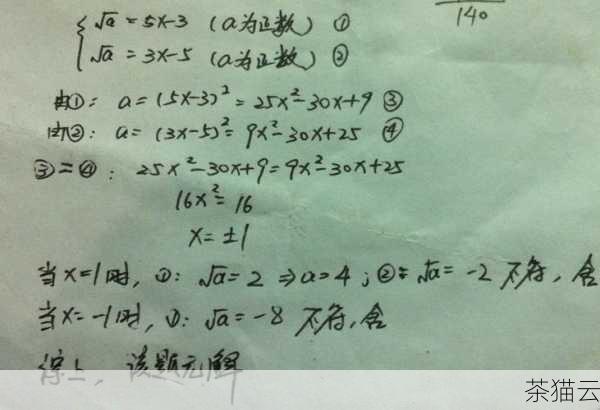 140
√a = 5x-3 (a为正数) ①
√a = 3x-5 (a为正数) ②
由①: a = (5x-3)² = 25x²-30x+9 ③
由②: a = (3x-5)² = 9x²-30x+25 ④
③=④: 25x²-30x+9 = 9x²-30x+25
16x² = 16
x = ±1
当x=1时, ①: √a = 2 ⇒ a=4; ②: √a = -2 不符, 舍
当x=-1时, ①: √a = -8 不符, 舍
综上, 该题无解
茶猫云